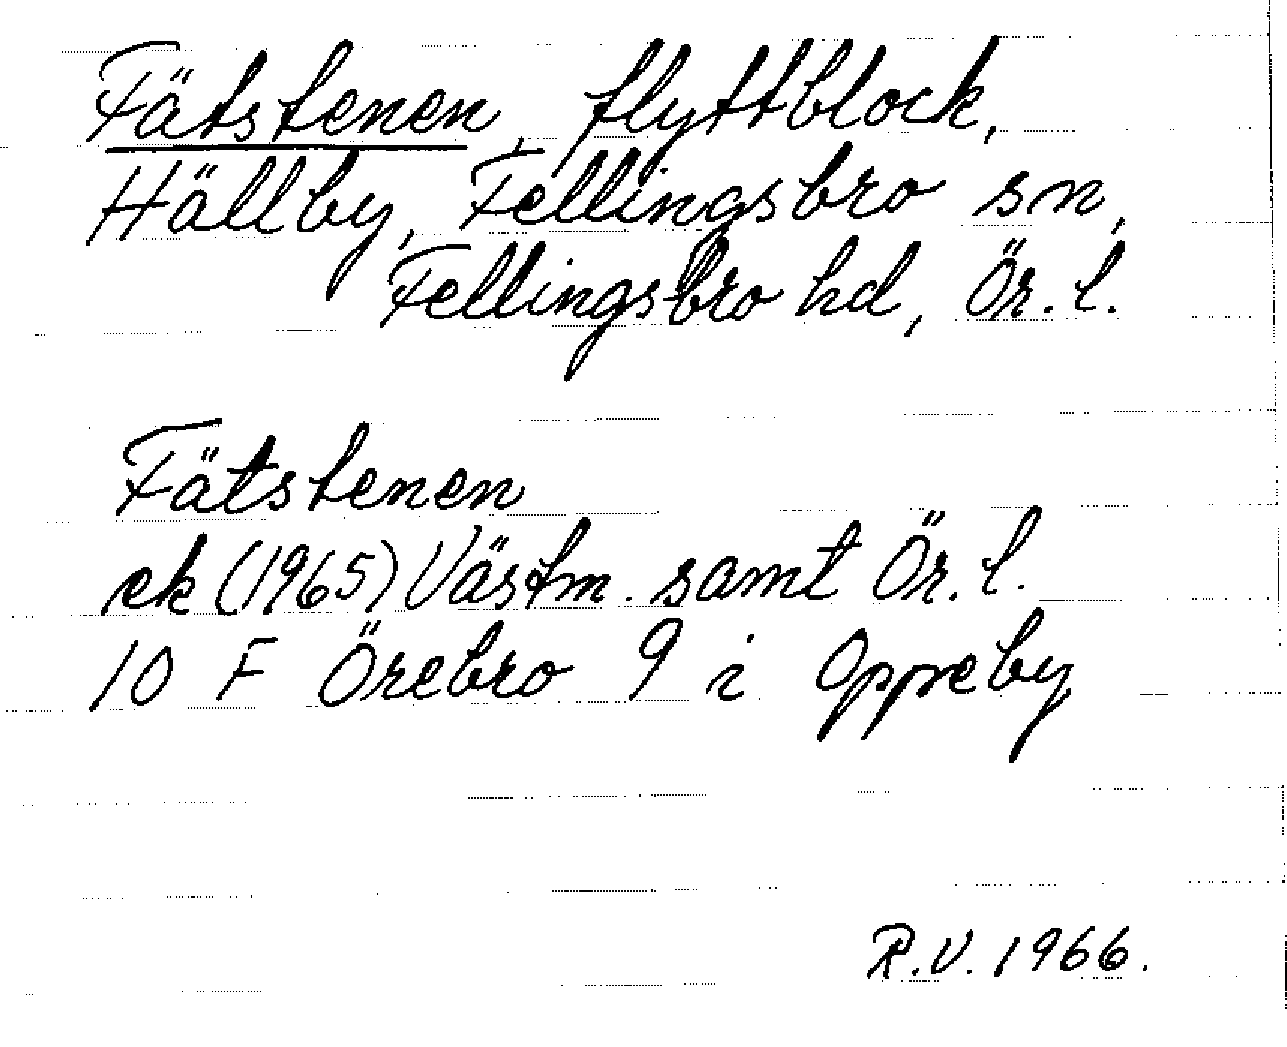 Fätstenen, flyttblock,
Hällby, Fellingsbro sn,
Fellingsbro hd, Ör. l.
Fätstenen
ek (1965) Västm. samt Ör. l.
10 F Örebro 9 i Oppreby
R.V. 1966.